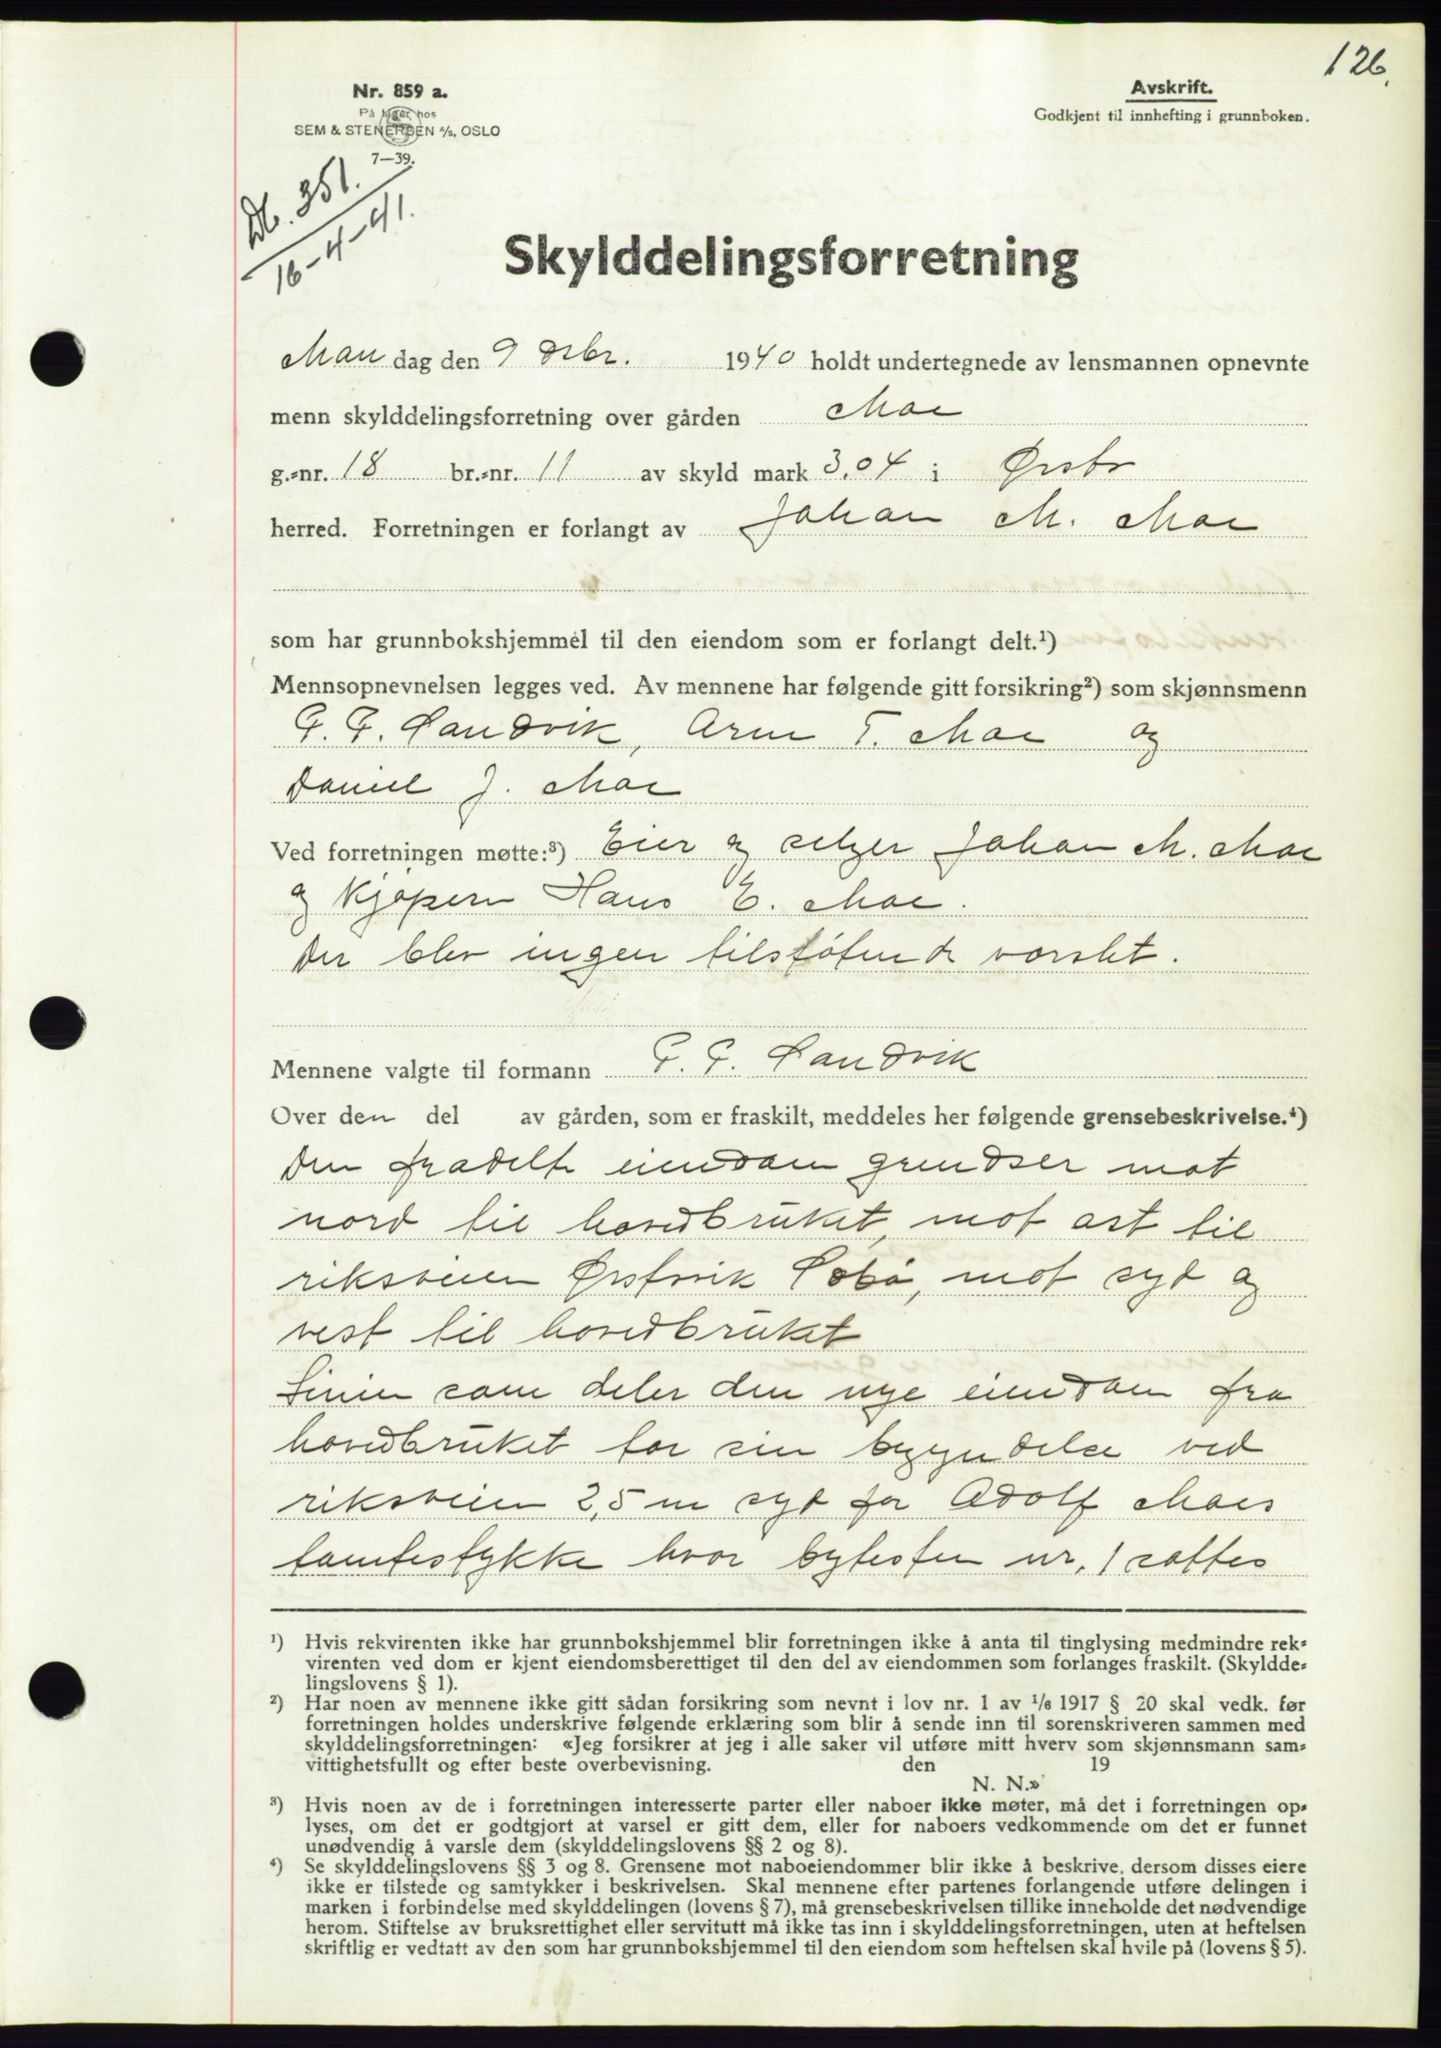 126.
Nr. 859 a.
På lager hos
SEM & STENERSEN A/S, OSLO
7—39.
Avskrift.
Godkjent til innhefting i grunnboken.
Db. 351.
16-4-41.
Skylddelingsforretning
Man dag den 9 desbr. 1940 holdt undertegnede av lensmannen opnevnte
menn skylddelingsforretning over gården Moe
g.-nr. 18 br.-nr. 11 av skyld mark 3,04 i Ørsta
herred. Forretningen er forlangt av Johan M. Moe
som har grunnbokshjemmel til den eiendom som er forlangt delt.¹)
Mennsopnevnelsen legges ved. Av mennene har følgende gitt forsikring²) som skjønnsmenn
G. G. Sandvik, Arne T. Moe og
Daniel J. Moe
Ved forretningen møtte:³) Eier og selger Johan M. Moe
og kjøperen Hans E. Moe.
Der blev ingen tilstøtende varslet.
Mennene valgte til formann G. G. Sandvik
Over den del av gården, som er fraskilt, meddeles her følgende grensebeskrivelse.⁴)
Den fradelte eiendom grendser mot
nord til hovedbruket, mot øst til
riksveien Ørstavik Sæbø, mot syd og
vest til hovedbruket
Linien som deler den nye eiendom fra
hovedbruket tar sin begyndelse ved
riksveien 2,5 m syd for Adolf Moes
tomtestykke hvor bytesten nr. 1 sattes
¹) Hvis rekvirenten ikke har grunnbokshjemmel blir forretningen ikke å anta til tinglysing medmindre rek-
virenten ved dom er kjent eiendomsberettiget til den del av eiendommen som forlanges fraskilt. (Skyldde-
lingslovens § 1).
²) Har noen av mennene ikke gitt sådan forsikring som nevnt i lov nr. 1 av 1/6 1917 § 20 skal vedk. før
forretningen holdes underskrive følgende erklæring som blir å sende inn til sorenskriveren sammen med
skylddelingsforretningen: «Jeg forsikrer at jeg i alle saker vil utføre mitt hverv som skjønnsmann sam-
vittighetsfullt og efter beste overbevisning. den 19
N. N.»
³) Hvis noen av de i forretningen interesserte parter eller naboer ikke møter, må det i forretningen op-
lyses, om det er godtgjort at varsel er gitt dem, eller for naboers vedkommende om det er funnet
unødvendig å varsle dem (skylddelingslovens §§ 2 og 8).
⁴) Se skylddelingslovens §§ 3 og 8. Grensene mot naboeiendommer blir ikke å beskrive, dersom disses eiere
ikke er tilstede og samtykker i beskrivelsen. Skal mennene efter partenes forlangende utføre delingen i
marken i forbindelse med skylddelingen (lovens § 7), må grensebeskrivelsen tillike inneholde det nødvendige
herom. Stiftelse av bruksrettighet eller servitutt må ikke tas inn i skylddelingsforretningen, uten at heftelsen
skriftlig er vedtatt av den som har grunnbokshjemmel til den eiendom som heftelsen skal hvile på (lovens § 5).